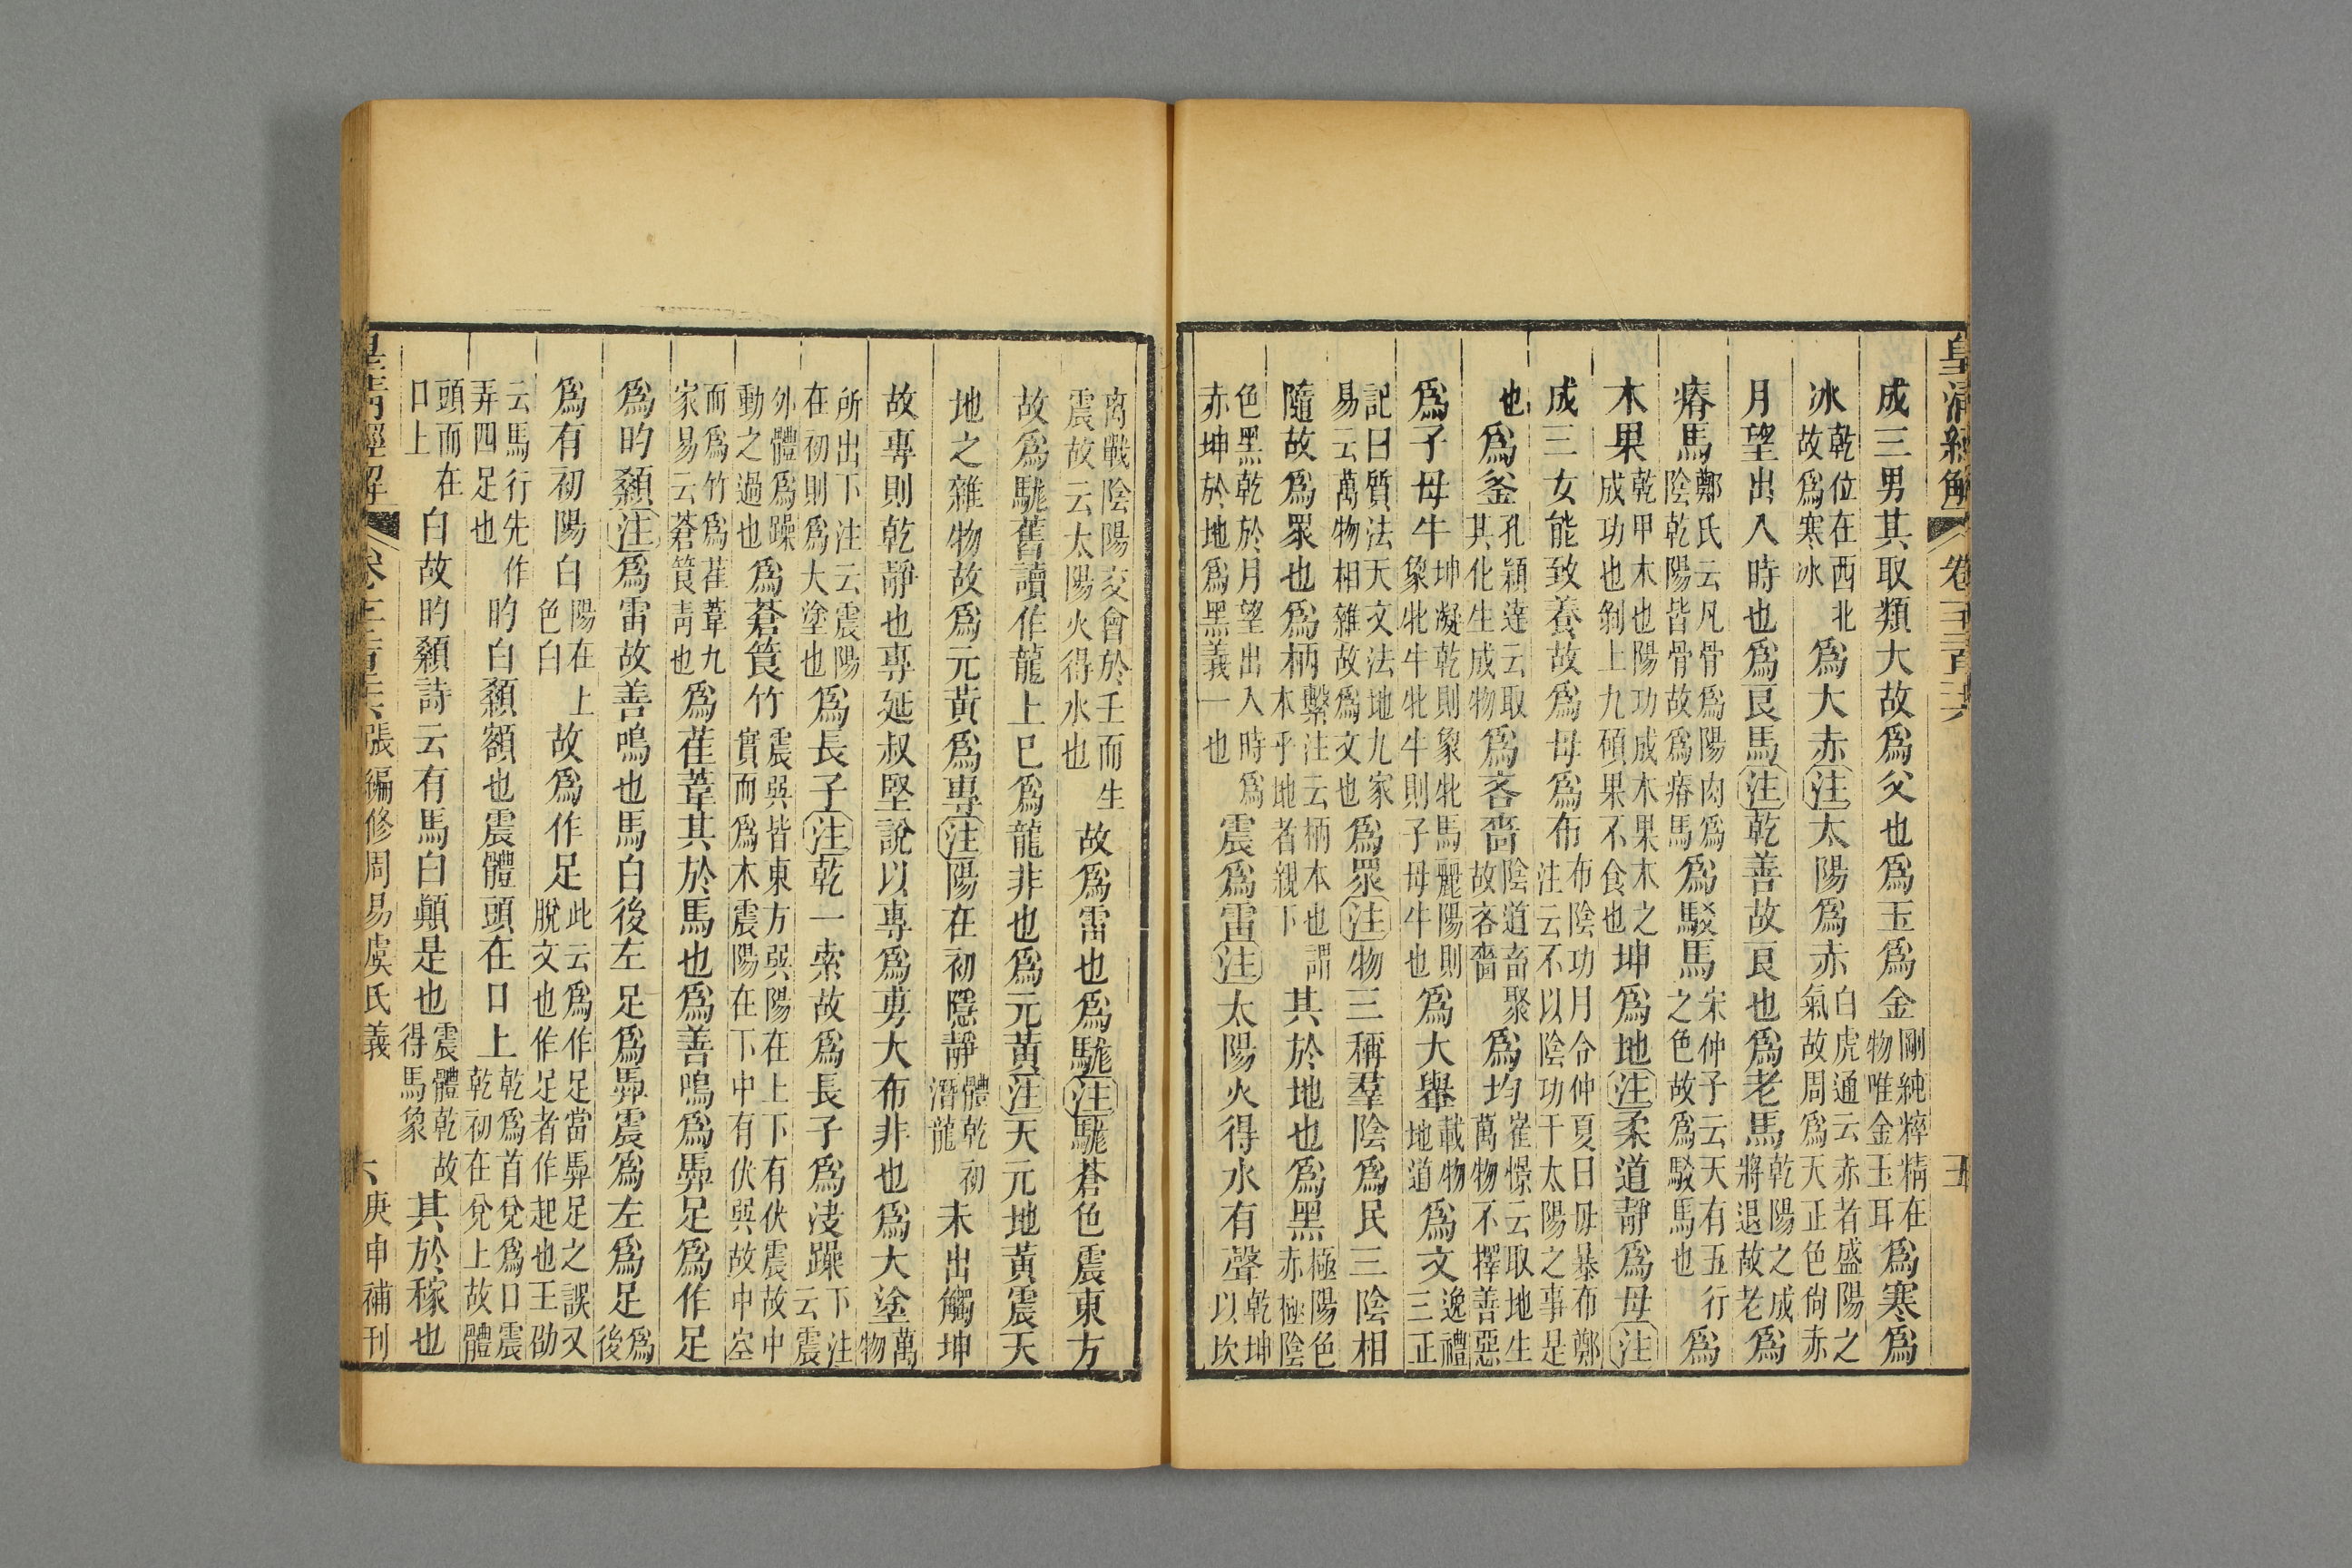 皇清經解 卷千二百二十六 五
成三男其取類大故爲父也爲玉爲金剛純粹精在物唯金玉耳爲寒爲
冰乾位在西北故爲寒冰爲大赤注太陽爲赤白虎通云赤者盛陽之氣故周爲天正色尙赤
月望出入時也爲良馬注乾善故良也爲老馬乾陽之成將退故老爲
瘠馬鄭氏云凡骨爲陽肉爲陰乾陽皆骨故爲瘠馬爲駁馬宋仲子云天有五行之色故爲駁馬也爲
木果乾甲木也陽功成木果木之成功也剝上九碩果不食也坤爲地注柔道靜爲母注
成三女能致養故爲母爲布布陰功月令仲夏日毋暴布鄭注云不以陰功干太陽之事是
也爲釜孔穎達云取其化生成物爲吝嗇陰道畜聚故吝嗇爲均崔憬云取地生萬物不擇善惡
爲子母牛坤凝乾則象牝馬麗陽則象牝牛牝牛則子母牛也爲大轝載物地道爲文逸禮三正
記曰質法天文法地九家易云萬物相雜故爲文也爲眾注物三稱羣陰爲民三陰相
隨故爲眾也爲柄繫注云柄本也謂本乎地者親下其於地也爲黑極陽色赤極陰
色黑乾於月望出入時爲赤坤於地爲黑義一也震爲雷注太陽火得水有聲乾坤以坎
离戰陰陽交會於壬而生震故云太陽火得水也故爲雷也爲駹注駹蒼色震東方
故爲駹舊讀作龍上已爲龍非也爲元黃注天元地黃震天
地之雜物故爲元黃爲專注陽在初隱靜體乾初潛龍未出觸坤
故專則乾靜也專延叔堅說以專爲旉大布非也爲大塗萬物
所出下注云震陽在初則爲大塗也爲長子注乾一索故爲長子爲決躁下注云震
外體爲躁動之過也爲蒼筤竹震巽皆東方巽陽在上下有伏震故中實而爲木震陽在下中有伏巽故中空
而爲竹爲萑葦九家易云蒼筤靑也爲萑葦其於馬也爲善鳴爲馵足爲作足
爲旳顙注爲雷故善鳴也馬白後左足爲馵震爲左爲足爲後
爲有初陽白陽在上色白故爲作足此云爲作足當馵足之誤又脫文也作足者作起也王劭
云馬行先作弄四足也旳白顙額也震體頭在口上乾爲首兌爲口震乾初在兌上故體
頭而在口上白故旳顙詩云有馬白顚是也震體乾故得馬象其於稼也
皇清經解 張編修周易虞氏義 六 庚申補刊